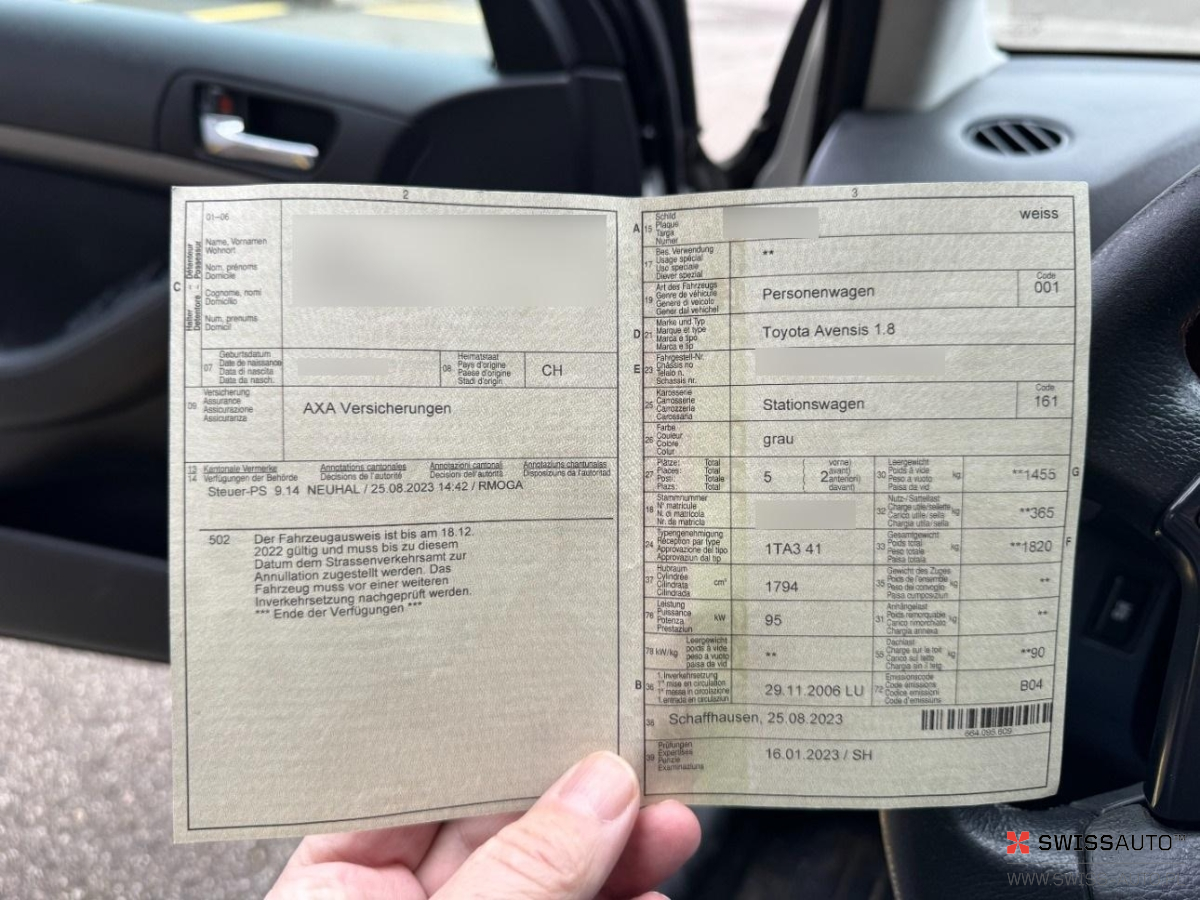 2
01-06
C
Halter - Détenteur
Detentore - Possessur
Name, Vornamen
Wohnort
Nom, prénoms
Domicile
Cognome, nomi
Domicilio
Num, prenums
Domicil
07
Geburtsdatum
Date de naissance
Data di nascita
Data da nasch.
08
Heimatstaat
Pays d'origine
Paese d'origine
Stadi d'origin
CH
09
Versicherung
Assurance
Assicurazione
Assicuranza
AXA Versicherungen
13
14
Kantonale Vermerke
Verfügungen der Behörde
Annotations cantonales
Décisions de l'autorité
Annotazioni cantonali
Decisioni dell'autorità
Annotaziuns chantunalas
Disposiziuns da l'autoritad
Steuer-PS 9.14 NEUHAL / 25.08.2023 14:42 / RMOGA
502 Der Fahrzeugausweis ist bis am 18.12.
2022 gültig und muss bis zu diesem
Datum dem Strassenverkehrsamt zur
Annullation zugestellt werden. Das
Fahrzeug muss vor einer weiteren
Inverkehrsetzung nachgeprüft werden.
*** Ende der Verfügungen ***
3
A
15
Schild
Plaque
Targa
Numer
weiss
17
Bes. Verwendung
Usage spécial
Uso speciale
Diever spezial
**
19
Art des Fahrzeugs
Genre de véhicule
Genere di veicolo
Gener dal vehichel
Personenwagen
Code
001
D
21
Marke und Typ
Marque et type
Marca e tipo
Marca e tip
Toyota Avensis 1.8
E
23
Fahrgestell-Nr.
Châssis no
Telaio n.
Schassis nr.
25
Karosserie
Carrosserie
Carrozzeria
Carossaria
Stationswagen
Code
161
26
Farbe
Couleur
Colore
Colur
grau
27
Plätze: Total
Places: Total
Posti: Totale
Plazs: Total
5
2
vorne)
avant)
anteriori)
davant)
30
Leergewicht
Poids à vide
Peso a vuoto
Paisa da vid
kg
**1455
G
18
Stammnummer
N° matricule
N. di matricola
Nr. da matricla
32
Nutz-/Sattellast
Charge utile/sellette
Carico utile/sella
Chargia utila/sella
kg
**365
24
Typengenehmigung
Réception par type
Approvazione del tipo
Approvaziun dal tip
1TA3 41
33
Gesamtgewicht
Poids total
Peso totale
Paisa totala
kg
**1820
F
37
Hubraum
Cylindrée
Cilindrata
Cilindrada
cm³
1794
35
Gewicht des Zuges
Poids de l'ensemble
Peso del convoglio
Paisa cumposiziun
kg
**
76
Leistung
Puissance
Potenza
Prestaziun
kW
95
31
Anhängelast
Poids remorquable
Carico rimorchiato
Chargia annexa
kg
**
78 kW/kg
Leergewicht
poids à vide
peso a vuoto
paisa da vid
**
55
Dachlast
Charge sur le toit
Carico sul tetto
Chargia sin il tetg
kg
**90
B
36
1. Inverkehrsetzung
1re mise en circulation
1a messa in circolazione
1. entrada en circulaziun
29.11.2006 LU
72
Emissionscode
Code émissions
Codice emissioni
Code d'emissiuns
B04
38
Schaffhausen, 25.08.2023
664.095.809
39
Prüfungen
Expertises
Perizie
Examinaziuns
16.01.2023 / SH
SWISSAUTO™